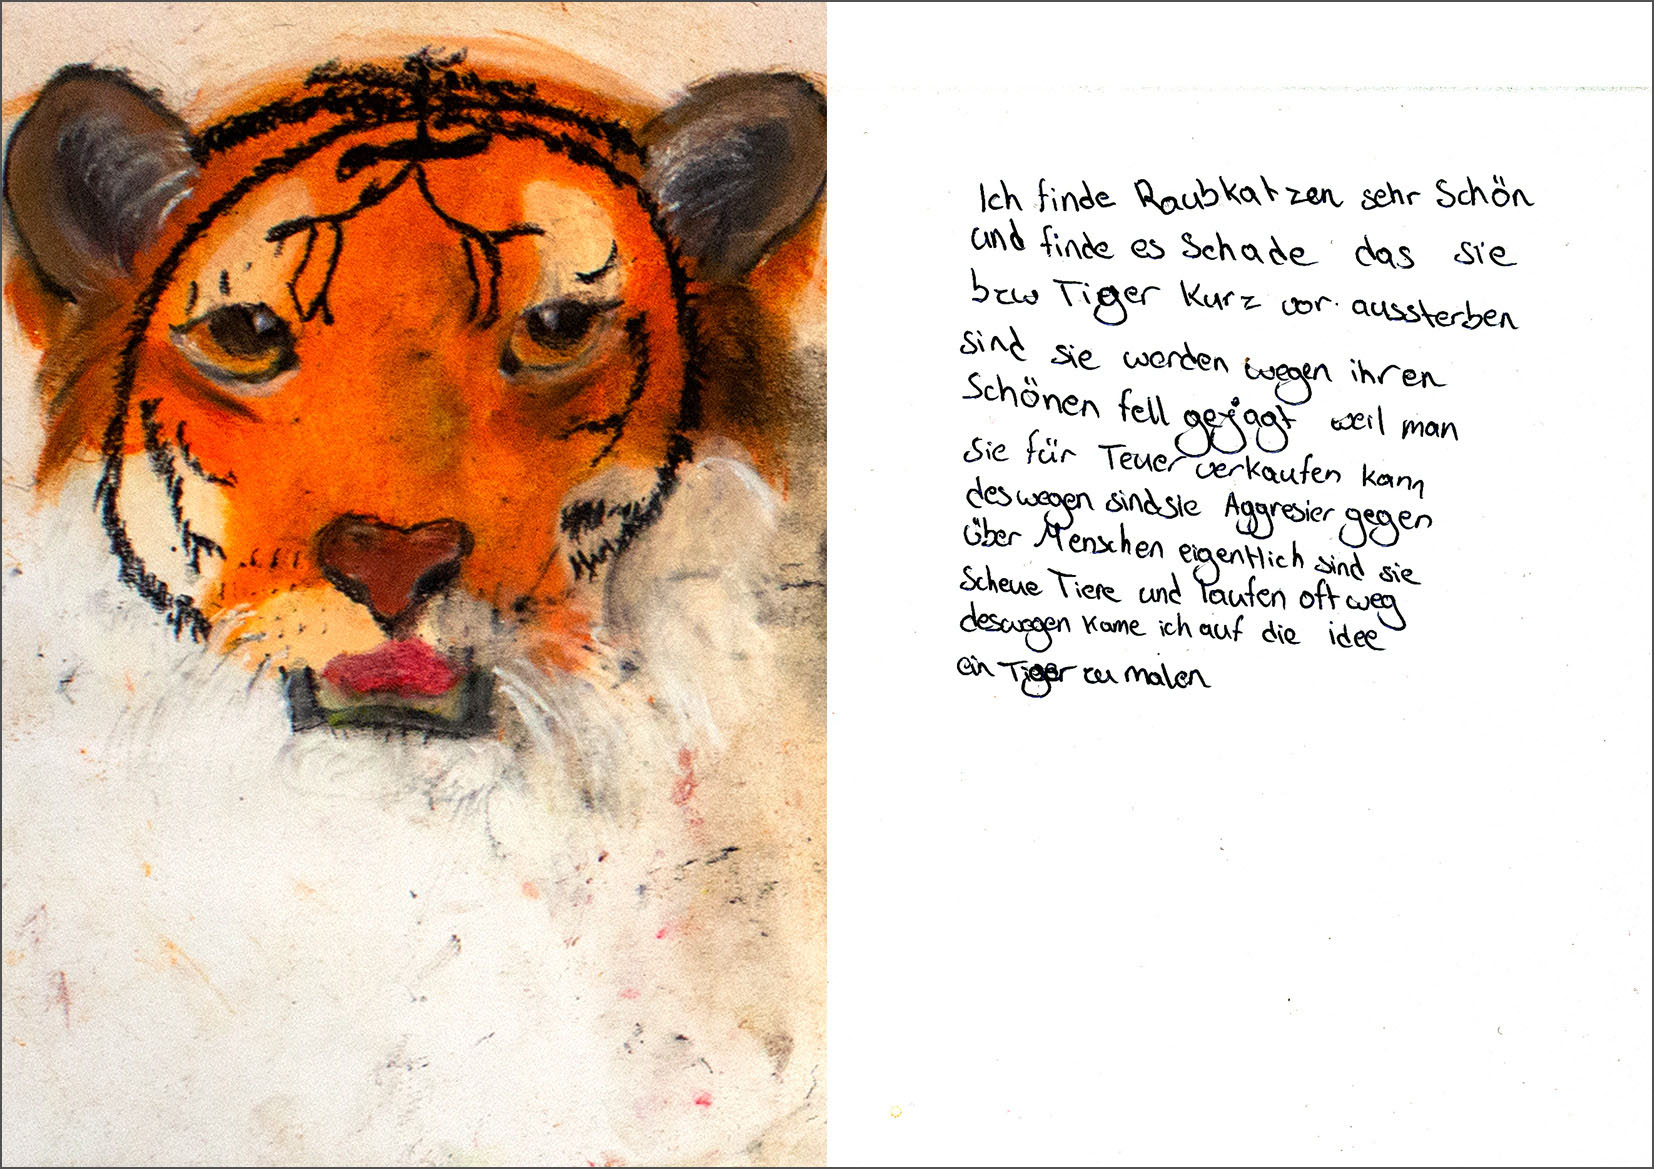 Ich finde Raubkatzen sehr Schön
und finde es Schade das sie
bzw Tiger Kurz vor aussterben
sind sie werden wegen ihren
Schönen fell gejagt weil man
sie für Teuer verkaufen kann
deswegen sind sie Aggresier gegen
über Menschen eigentlich sind sie
Scheue Tiere und laufen oft weg
deswegen kame ich auf die idee
ein Tiger zu malen